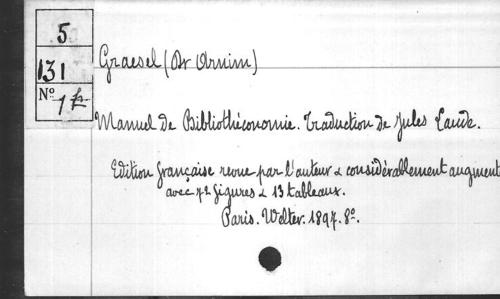 5
131
Nº 1
Graesel (Dr Arnim)
Manuel de Bibliothéconomie. Traduction de Jules Laude.
Edition française revue par l'auteur & considérablement augment
avec 72 figures & 13 tableaux.
Paris. Welter. 1897. 8º.